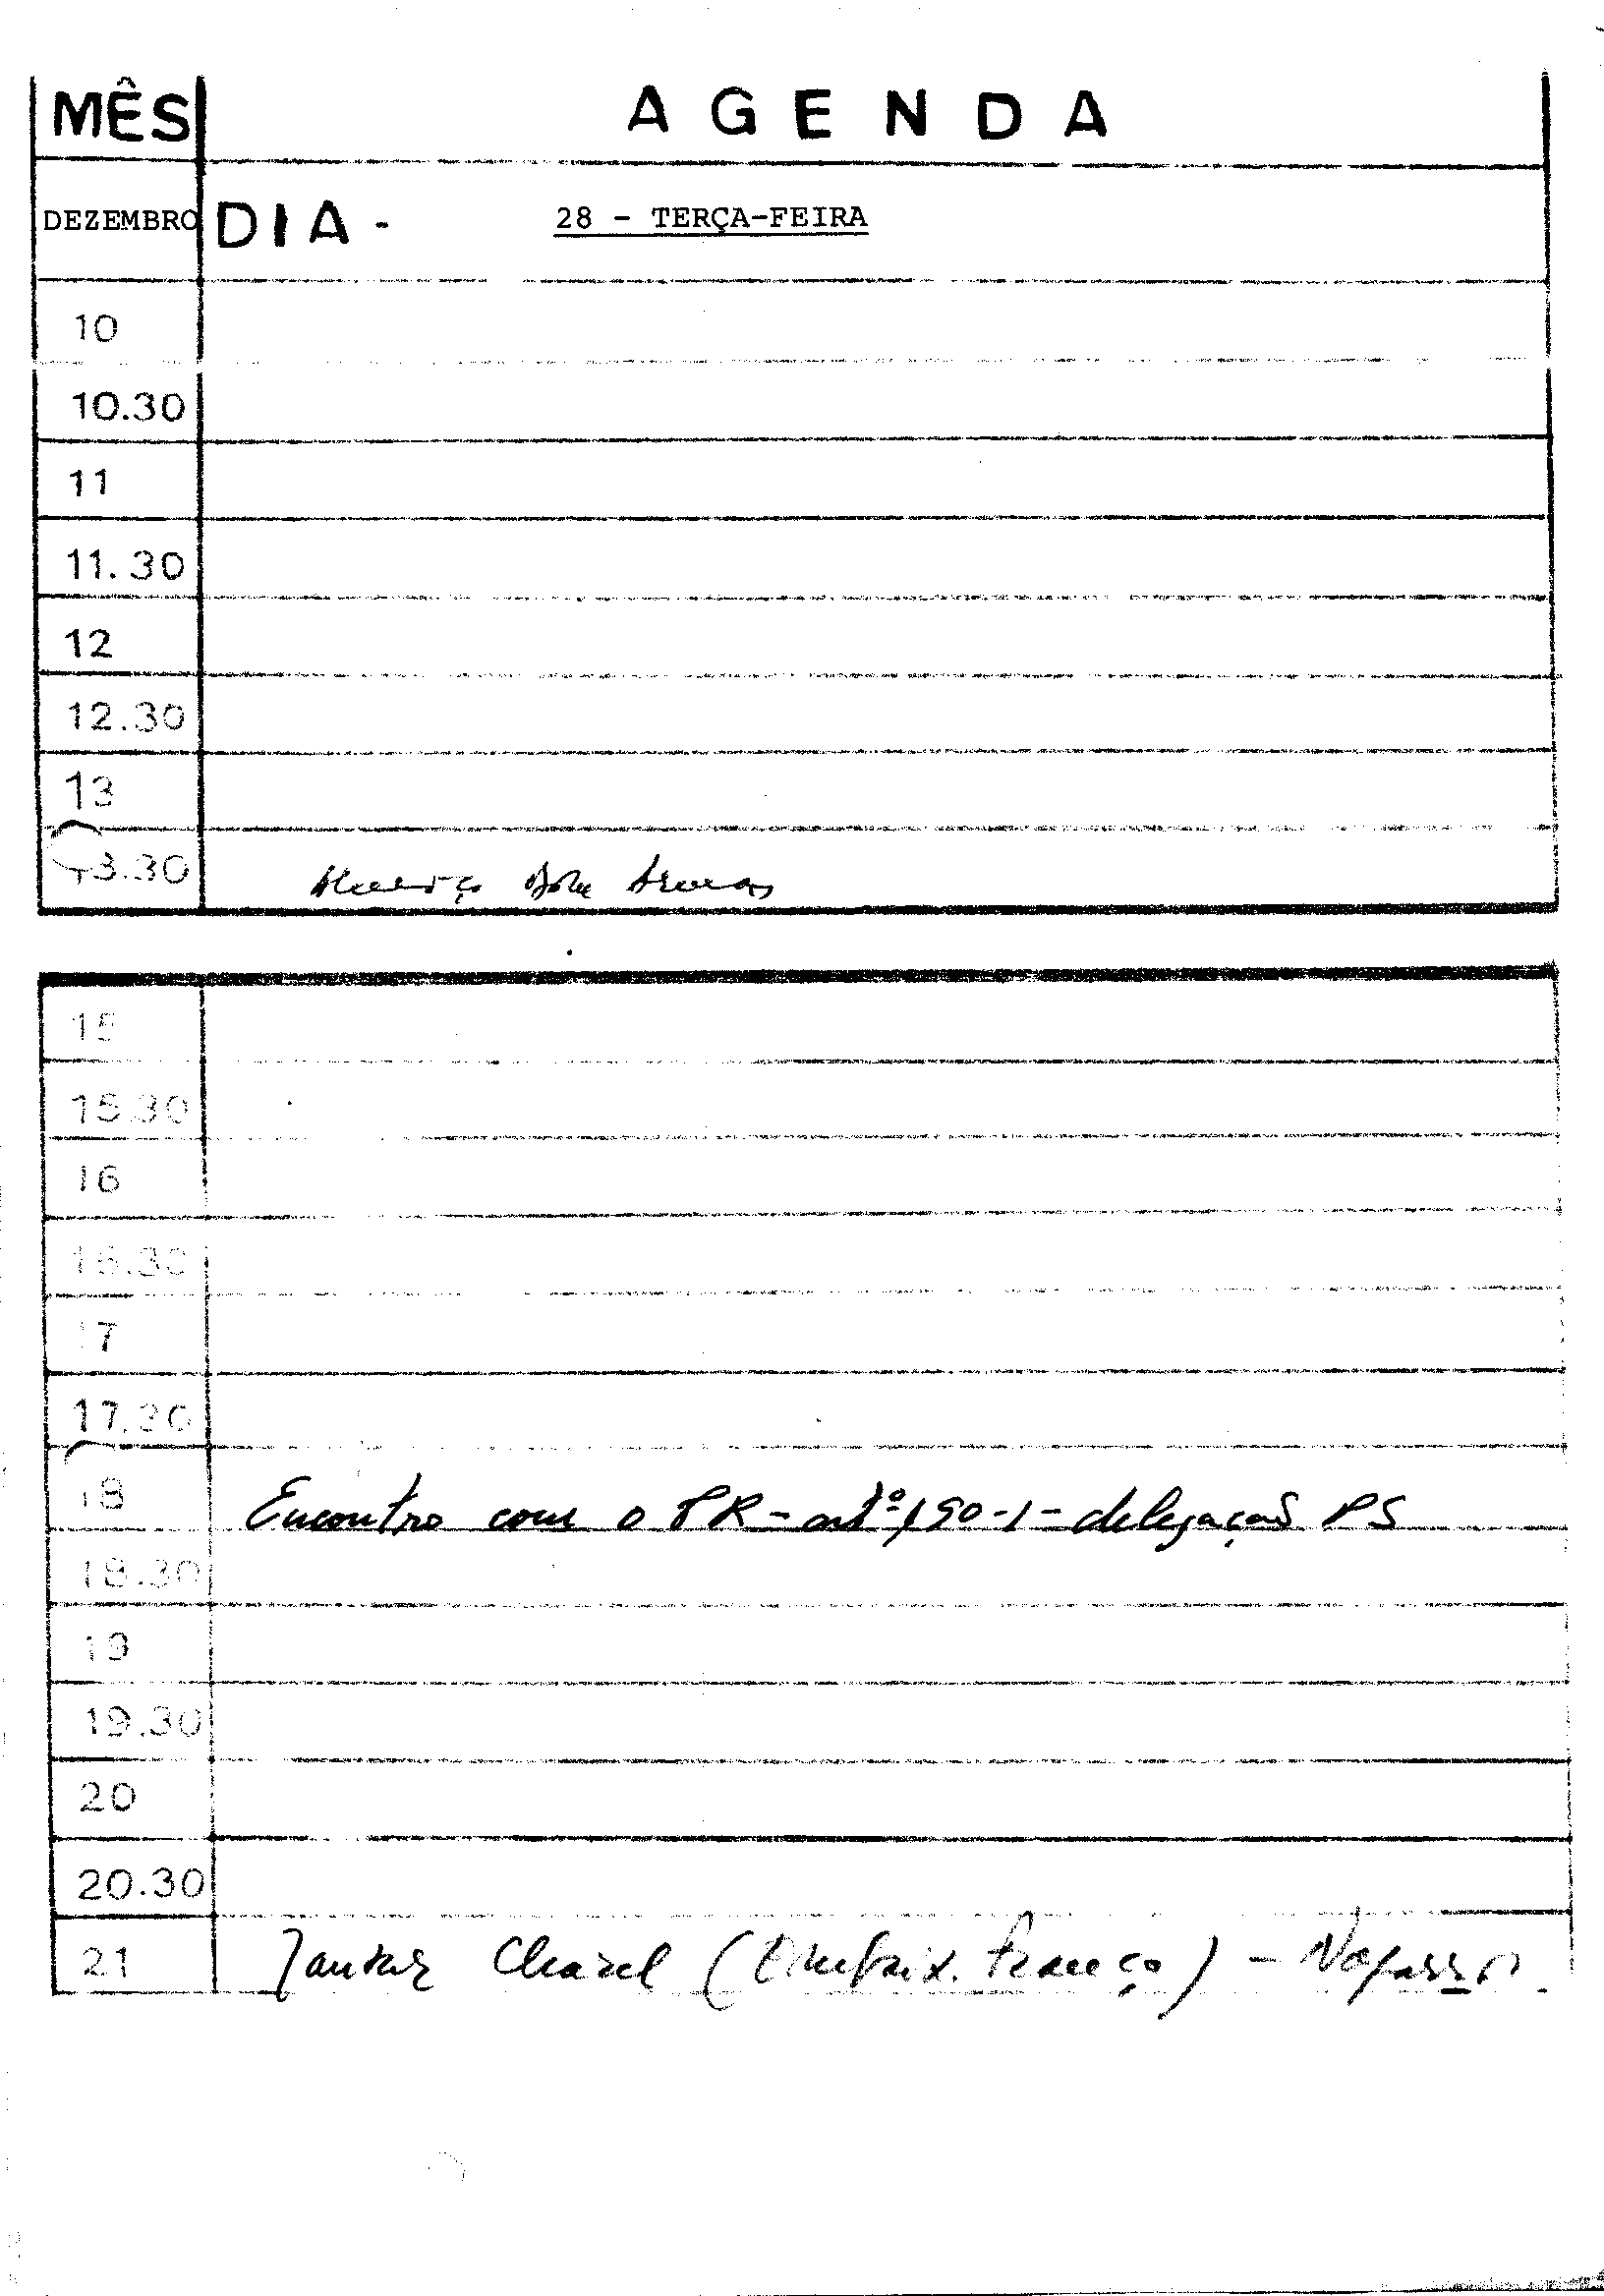 MÊS AGENDA
DEZEMBRO DIA - 28 - TERÇA-FEIRA
10
10.30
11
11.30
12
12.30
13
13.30 Almoço
15
15.30
16
16.30
17
17.30
18 Encontro com o PR - artº 150-1 - delegação PS
18.30
19
19.30
20
20.30
21 Jantar Chazel (Embaix. França) -